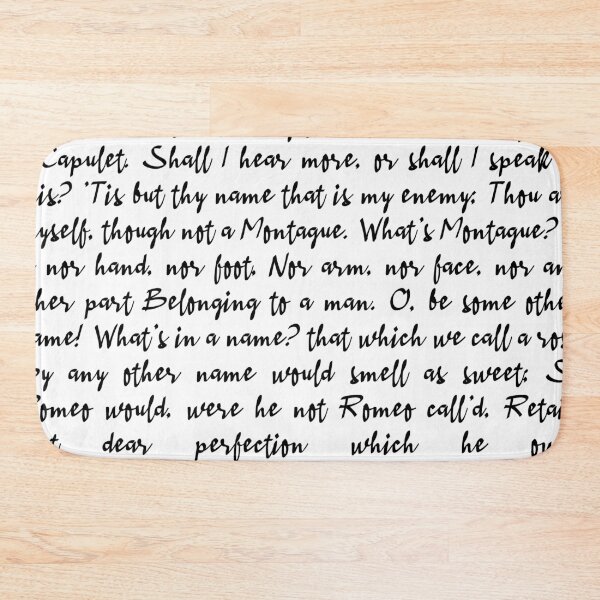 Capulet. Shall I hear more, or shall I speak
is? 'Tis but thy name that is my enemy; Thou a
yself, though not a Montague. What's Montague?
nor hand, nor foot, Nor arm, nor face, nor an
her part Belonging to a man. O, be some othe
ame! What's in a name? that which we call a ros
y any other name would smell as sweet; S
Romeo would, were he not Romeo call'd, Retai
t dear perfection which he ow